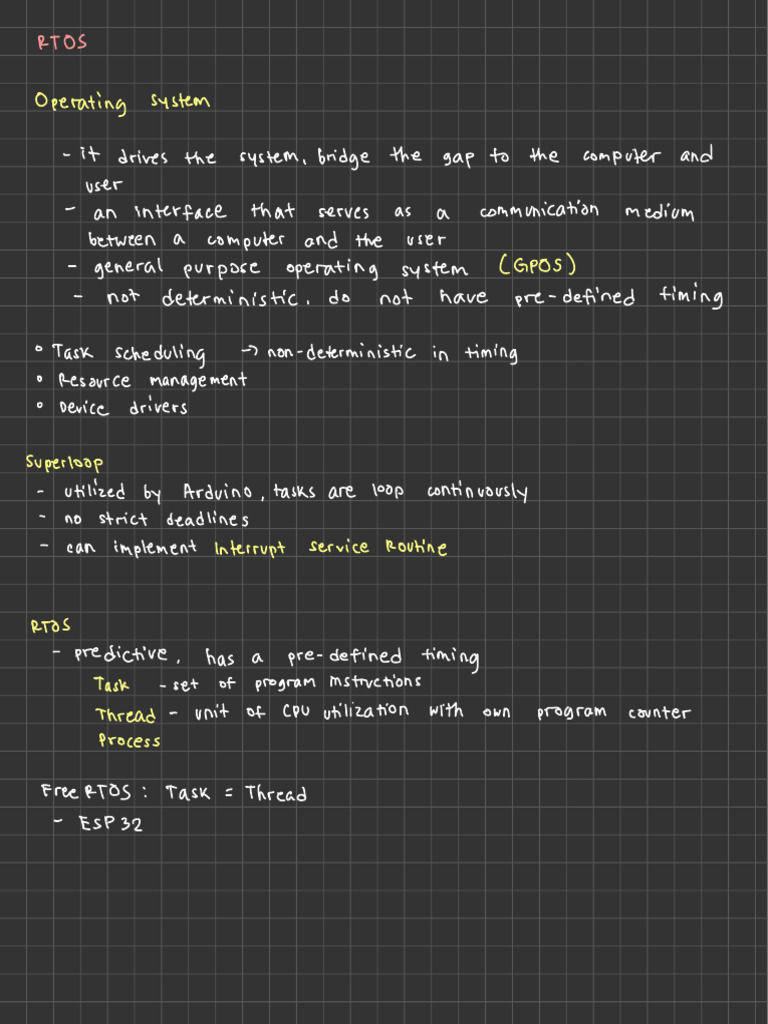 RTOS
Operating system
- it drives the system, bridge the gap to the computer and
user
- an interface that serves as a communication medium
between a computer and the user
- general purpose operating system (GPOS)
- not deterministic, do not have pre-defined timing
° Task scheduling → non-deterministic in timing
° Resource management
° Device drivers
Superloop
- utilized by Arduino, tasks are loop continuously
- no strict deadlines
- can implement Interrupt Service Routine
RTOS
- predictive, has a pre-defined timing
Task - set of program instructions
Thread - unit of CPU utilization with own program counter
Process
Free RTOS : Task = Thread
- ESP 32